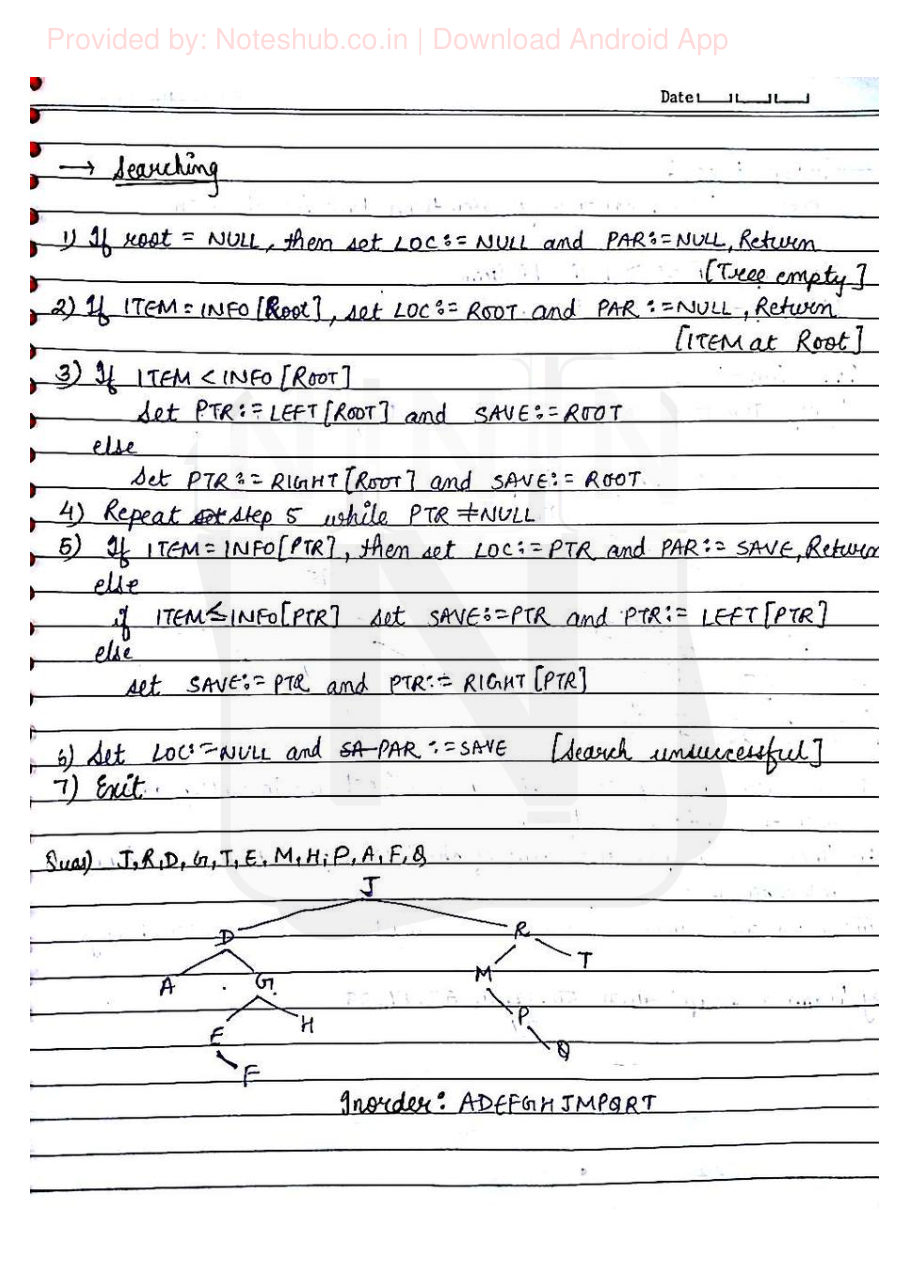 Provided by: Noteshub.co.in | Download Android App
Date
→ Searching
1) If root = NULL, then set LOC := NULL and PAR := NULL, Return
[Tree empty]
2) If ITEM = INFO [Root], set LOC := ROOT and PAR := NULL, Return
[ITEM at Root]
3) If ITEM < INFO [ROOT]
Set PTR := LEFT [ROOT] and SAVE := ROOT
else
Set PTR := RIGHT [ROOT] and SAVE := ROOT.
4) Repeat step 5 while PTR ≠ NULL
5) If ITEM = INFO [PTR], then set LOC := PTR and PAR := SAVE, Return
else
if ITEM ≤ INFO [PTR] set SAVE := PTR and PTR := LEFT [PTR]
else
set SAVE := PTR and PTR := RIGHT [PTR]
6) Set LOC := NULL and SA PAR := SAVE [Search unsuccessful]
7) Exit.
Ques) J, R, D, G, T, E, M, H, P, A, F, Q
J
D R
A G M T
E H P
F Q
Inorder: ADEFGHJMPQRT